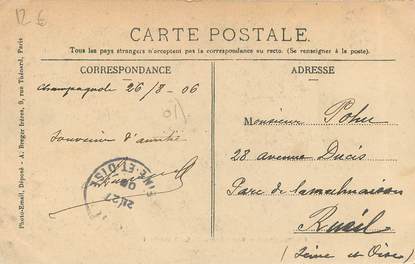 12 €
CARTE POSTALE.
Tous les pays étrangers n'acceptent pas la correspondance au recto. (Se renseigner à la poste).
CORRESPONDANCE
ADRESSE
Champagnole 26/8-06
Souvenir d'amitié
Monsieur Pohu
28 avenue Ducis
Parc de Lamalmaison
Rueil
(Seine et Oise)
ET-OISE
Photo-Email, Déposé - A. Breger frères, 9, rue Thénard, Paris